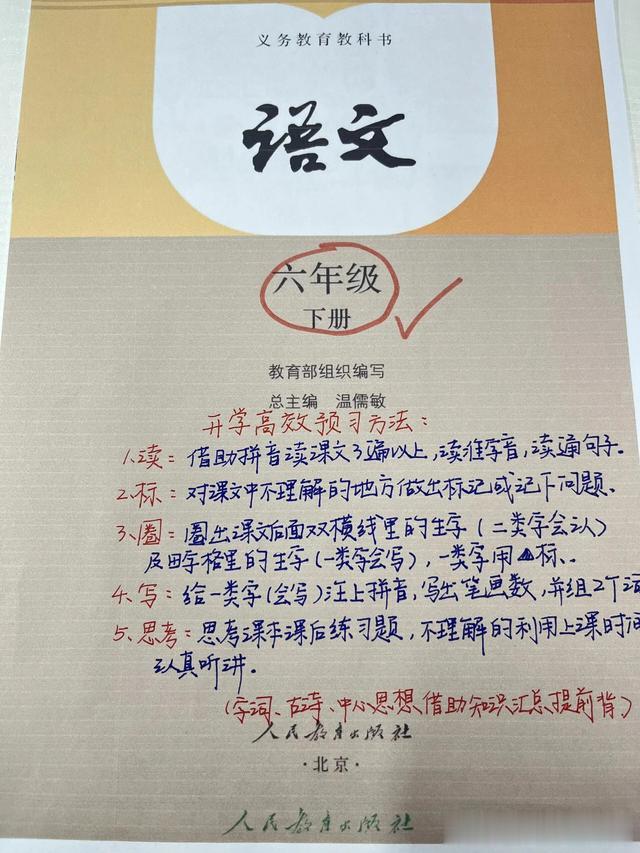 义务教育教科书
语文
六年级
下册
教育部组织编写
总主编 温儒敏
开学高效预习方法：
1.读：借助拼音读课文3遍以上，读准字音，读通句子。
2.标：对课文中不理解的地方做出标记或记下问题。
3.圈：圈出课文后面双横线里的生字（二类字会认）
及田字格里的生字（一类字会写），一类字用▲标。
4.写：给一类字（会写）注上拼音，写出笔画数，并组2个词
5.思考：思考课本课后练习题，不理解的利用上课时间
认真听讲。
（字词、古诗、中心思想借助知识汇总提前背）
人民教育出版社
·北京·
人民教育出版社